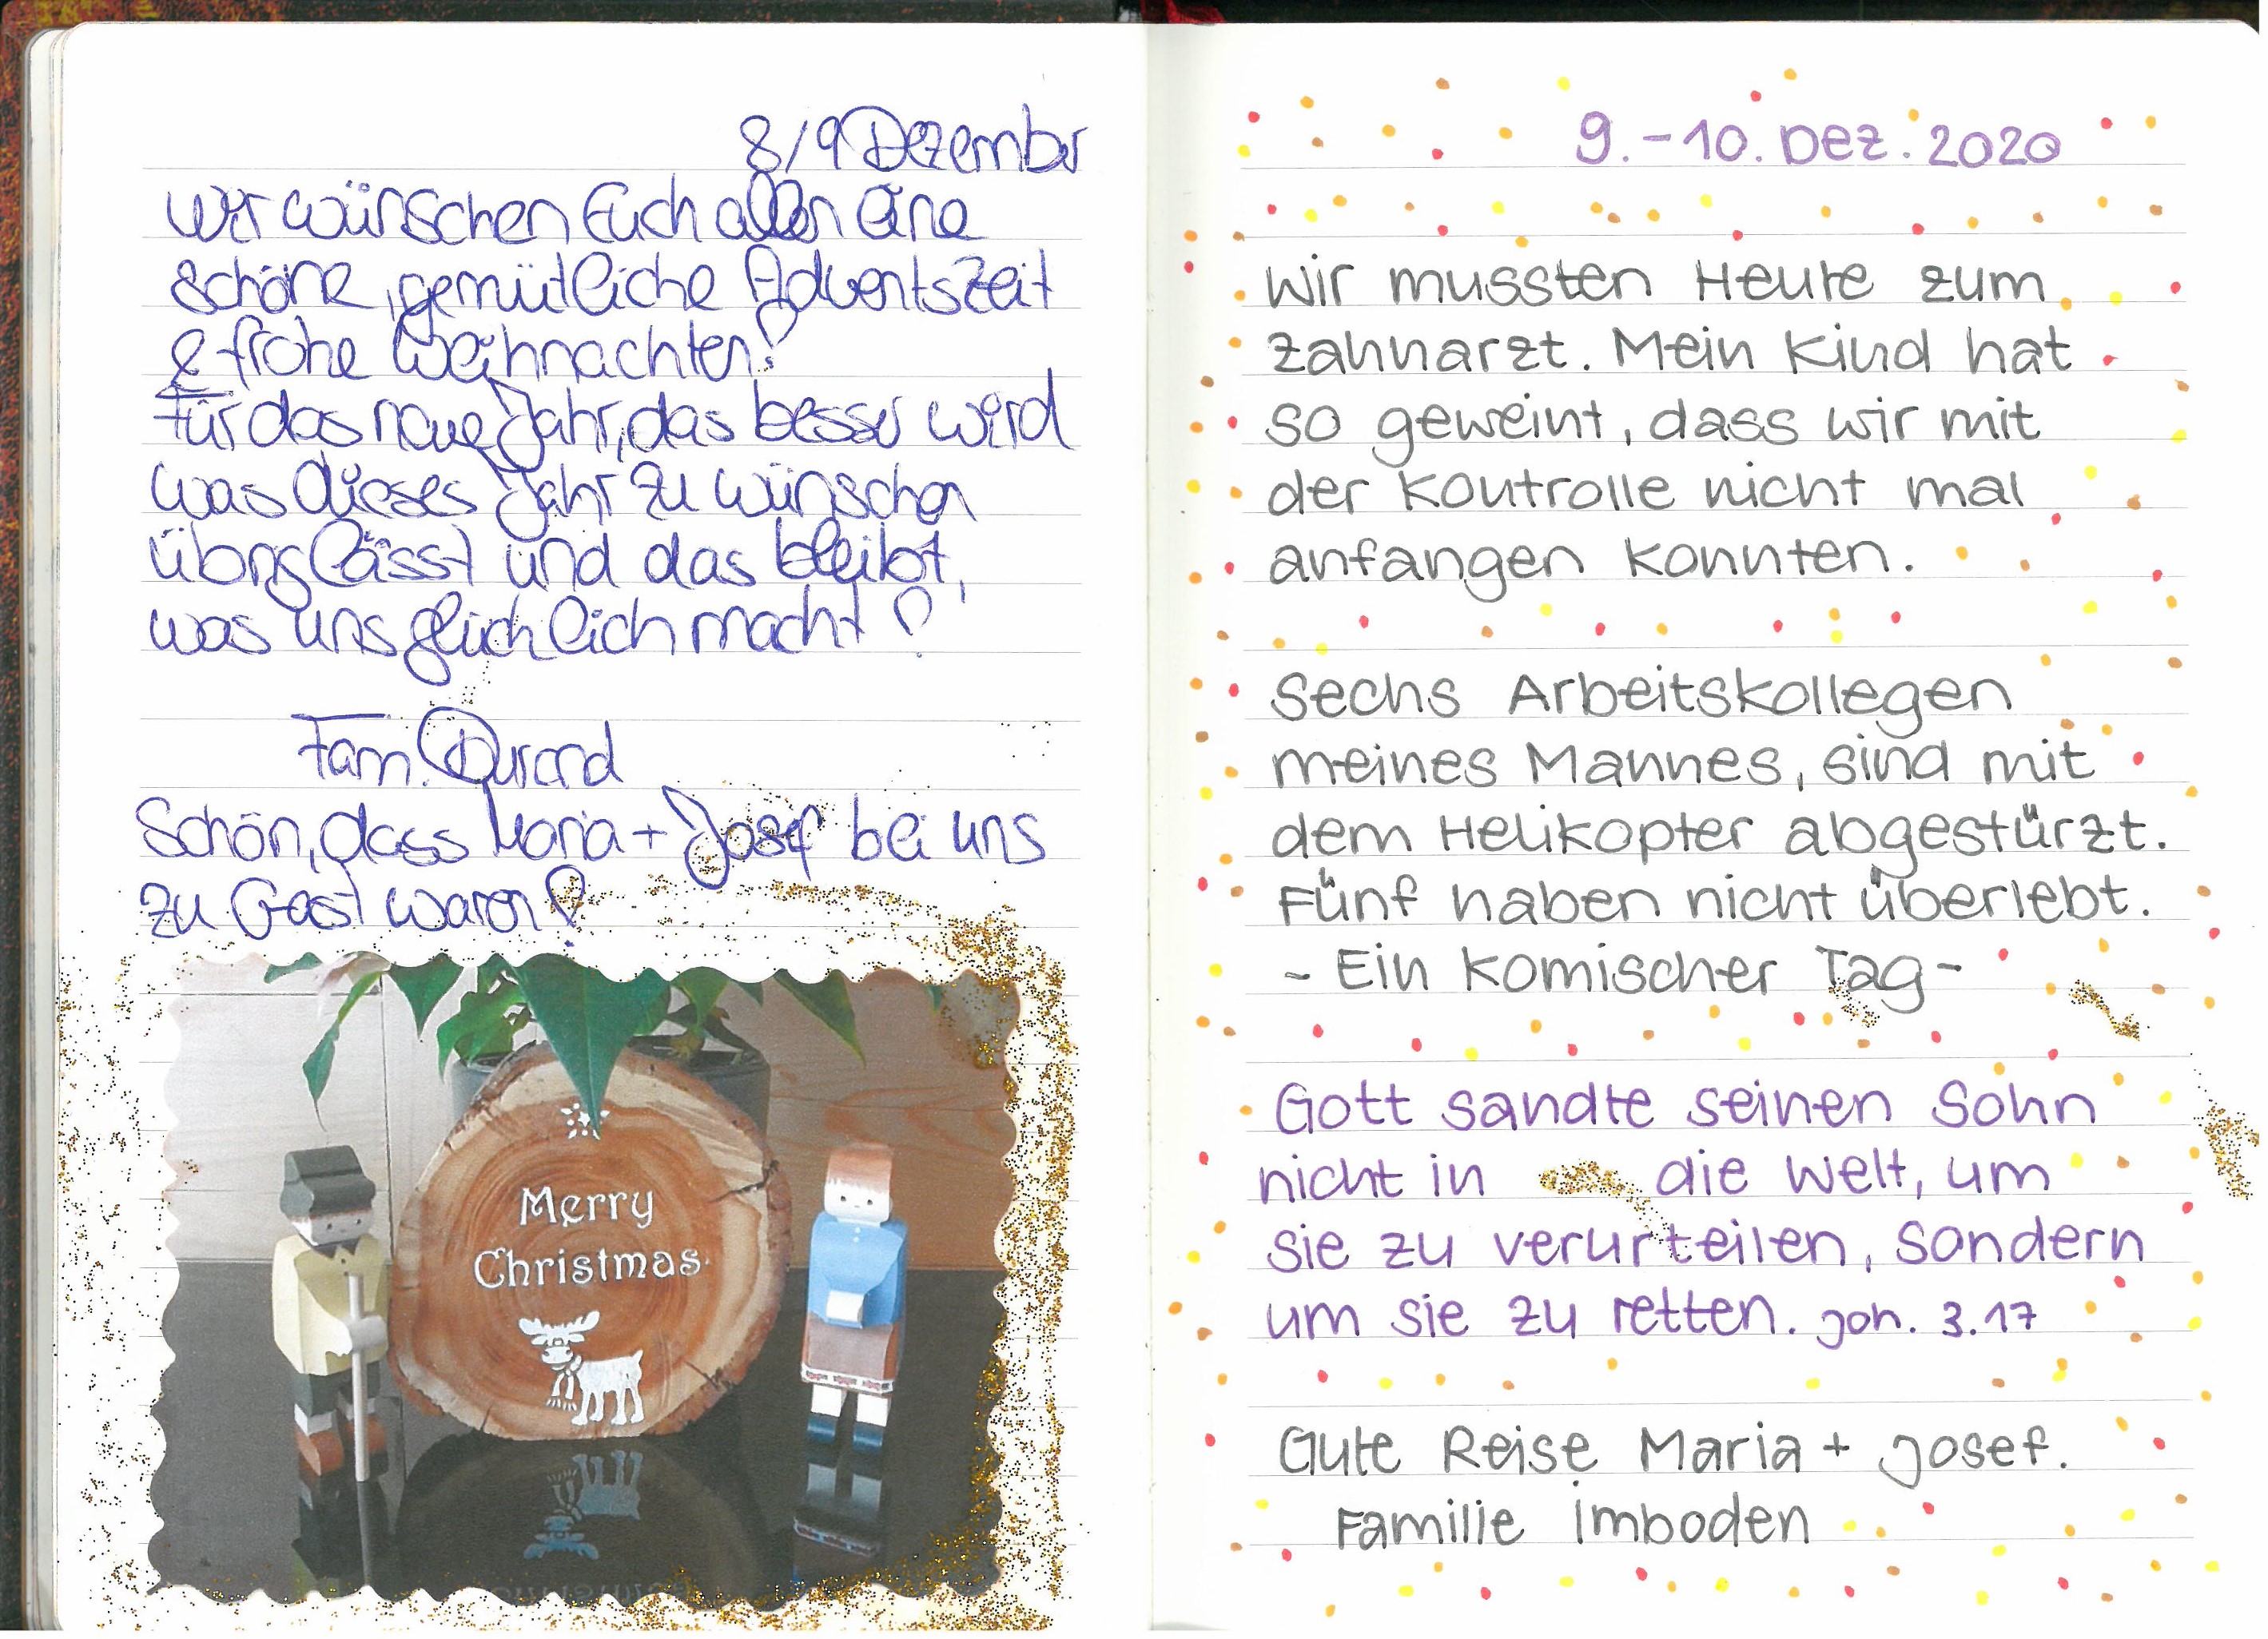 8/9 Dezember
Wir wünschen Euch allen eine
schöne, gemütliche Adventszeit
& frohe Weihnachten!
Für das neue Jahr, das besser wird
was dieses Jahr zu wünschen
übrig lässt und das bleibt,
was uns glücklich macht!
Fam. Durand
Schön, dass Maria + Josef bei uns
zu Gast waren!
Merry
Christmas
9.-10. Dez. 2020
Wir mussten Heute zum
Zahnarzt. Mein Kind hat
so geweint, dass wir mit
der Kontrolle nicht mal
anfangen konnten.
Sechs Arbeitskollegen
meines Mannes, sind mit
dem Helikopter abgestürzt.
Fünf haben nicht überlebt.
- Ein komischer Tag -
Gott sandte seinen Sohn
nicht in die Welt, um
sie zu verurteilen, sondern
um sie zu retten. Joh. 3.17
Gute Reise Maria + Josef.
Familie Imboden